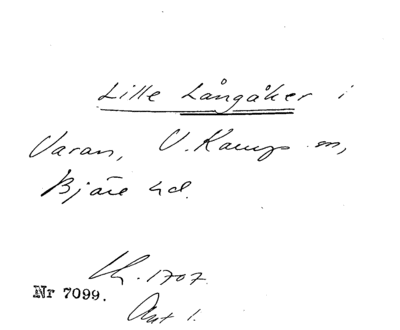 Lille Långåker i
Varan, V. Karup sn,
Bjäre hd.
Lh. 1707.
Nr 7099.
Akt 1.